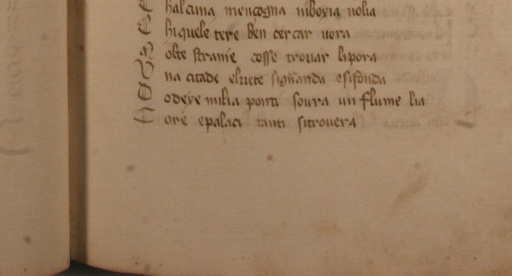 C halcuna mençogna niboxia nolia
C hiquele tere ben cercar uora
M olte stranie cosse trouar lipora
V na citade eluete signanda esisonda
D odexe milia ponti soura un flume lia
T ore epalaci tanti sitrouera